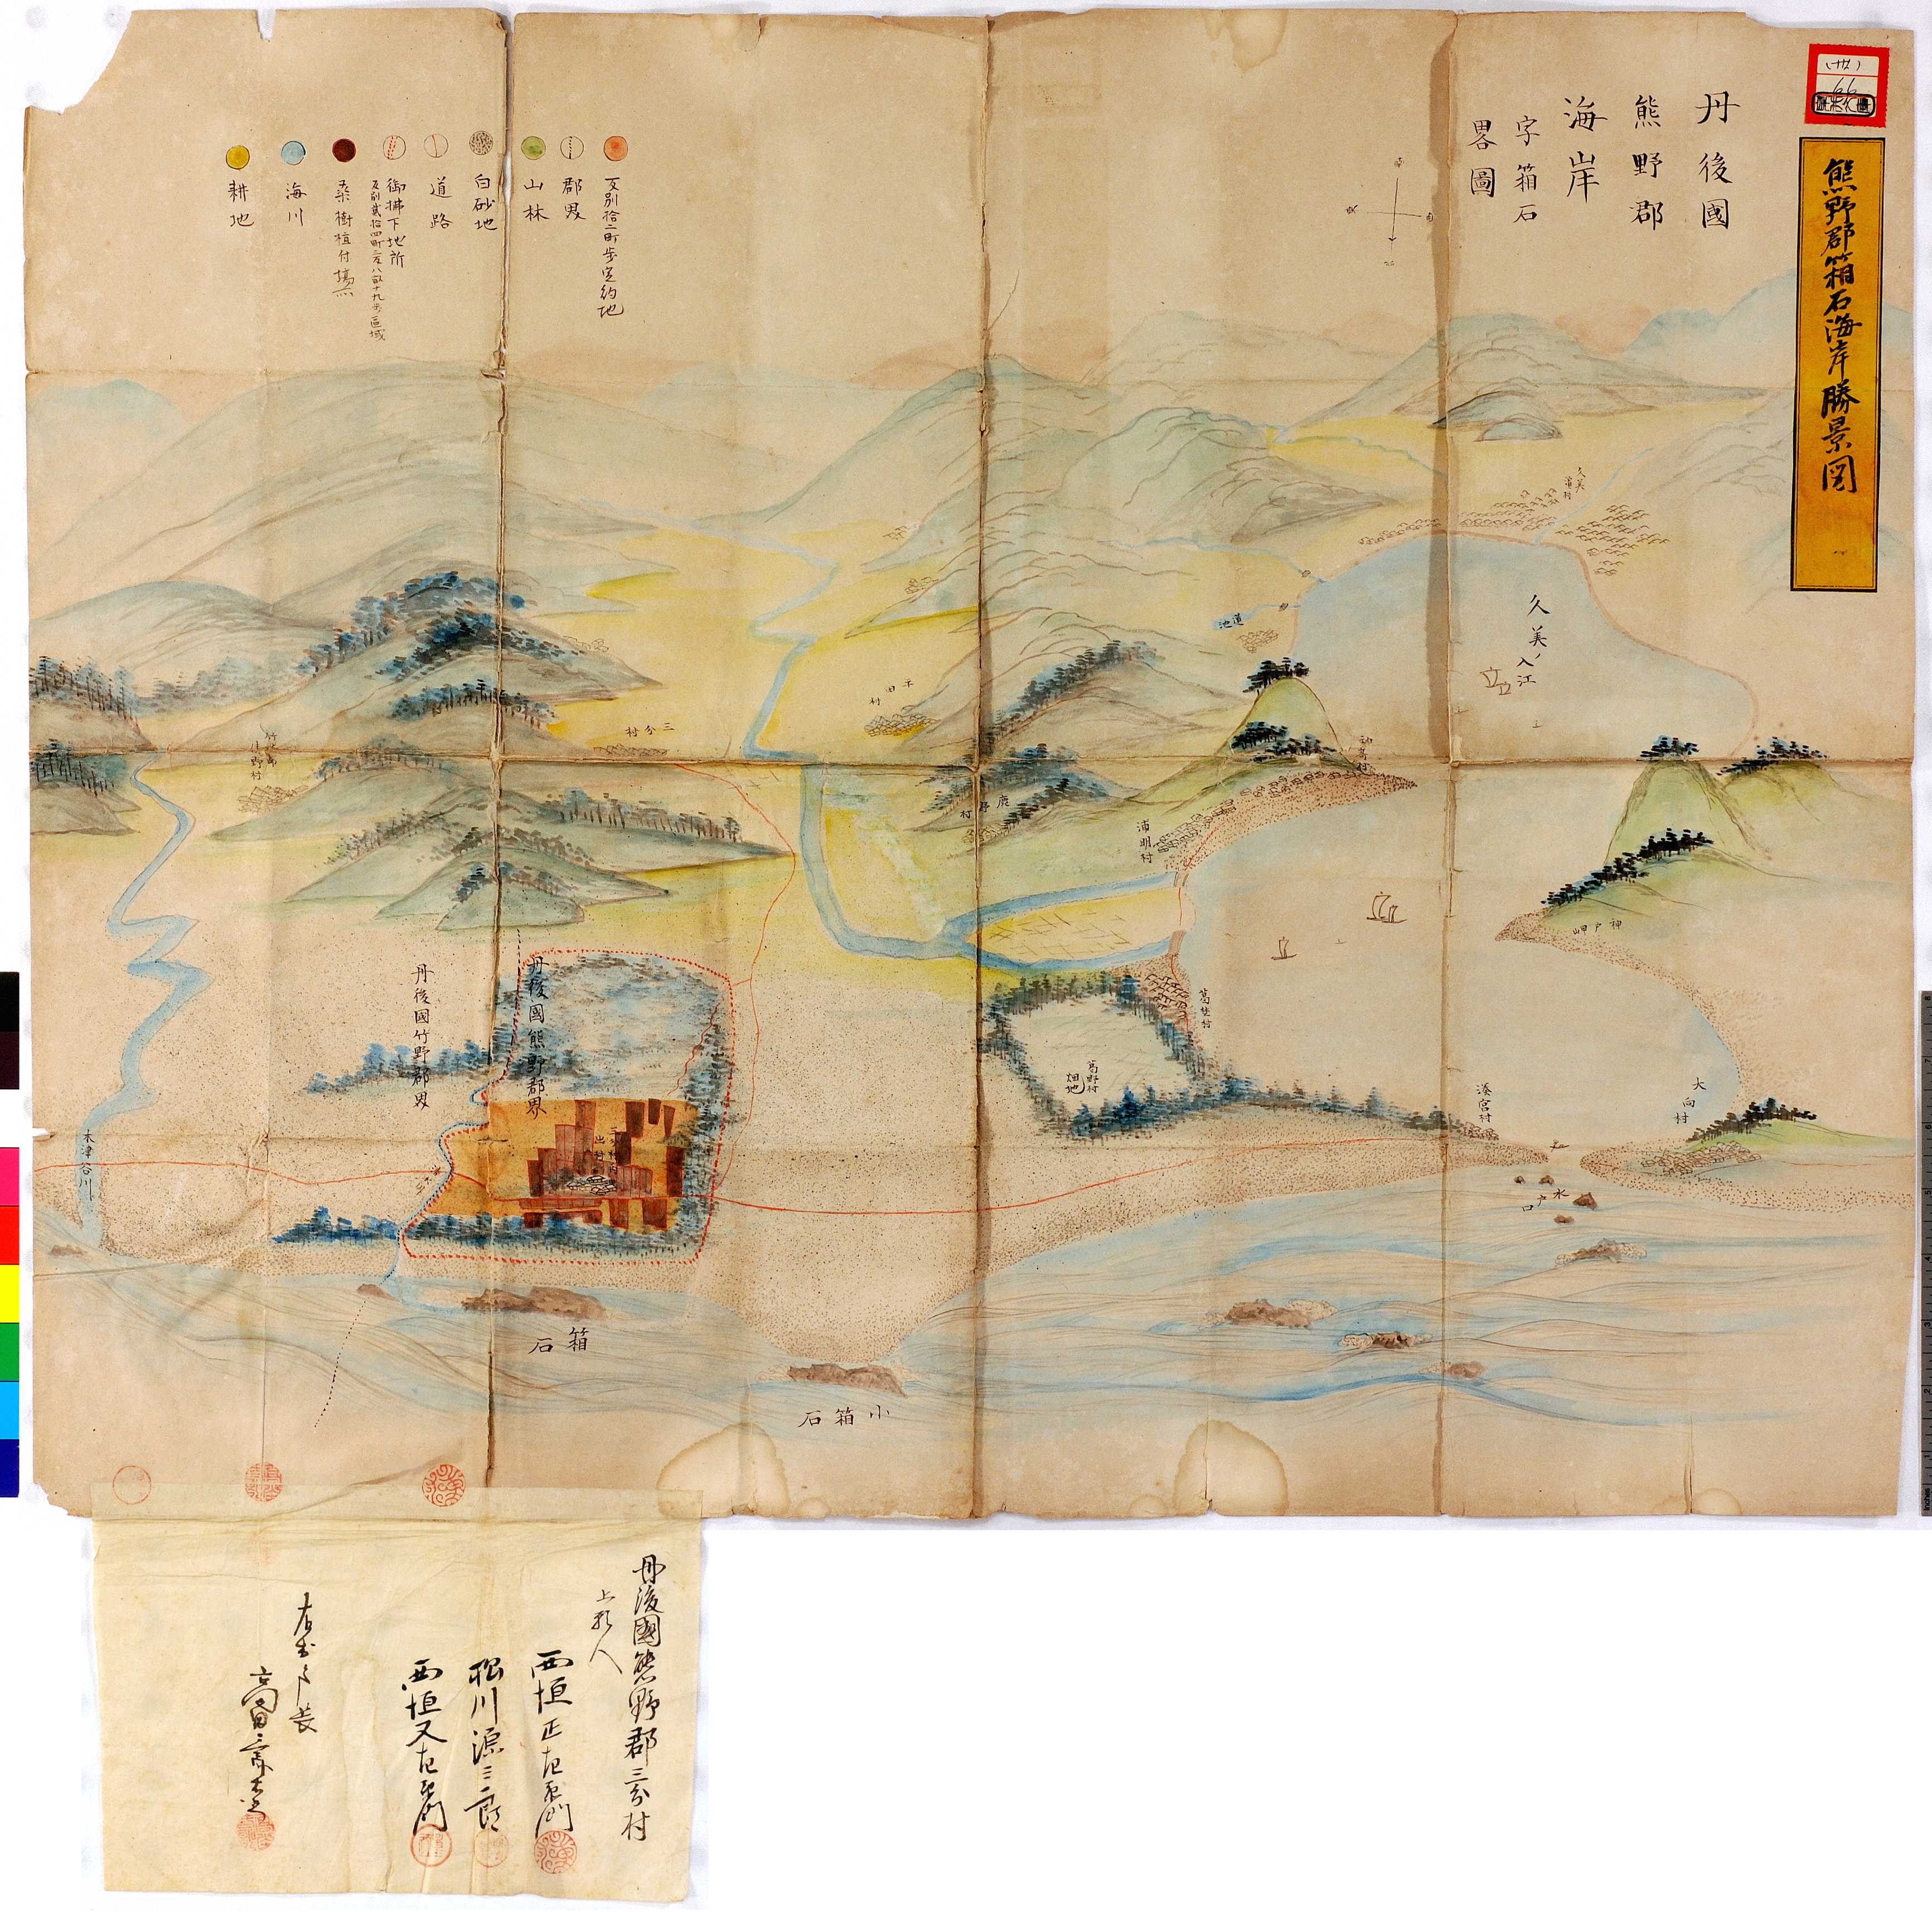 熊野郡箱石海岸勝景図
66
丹後國
熊野郡
海岸
字箱石
畧圖
反別拾二町歩定約地
郡界
山林
白砂地
道路
御拂下地所
反別貳拾四町二反八畝十九歩區域
桑樹植付場所
海川
耕地
久美濱村
久美ノ入江
道池
平田村
三分村
神崎村
浦明村
鹿野村
神戸岬
葛野村
畑地
湊宮村
大向村
水戸口
丹後國熊野郡界
丹後國竹野郡界
三分村内
出村
木津谷川
箱石
小箱石
丹後國熊野郡三分村
上願人
西垣正左衛門
松川源三郎
西垣又左衛門
右村戸長